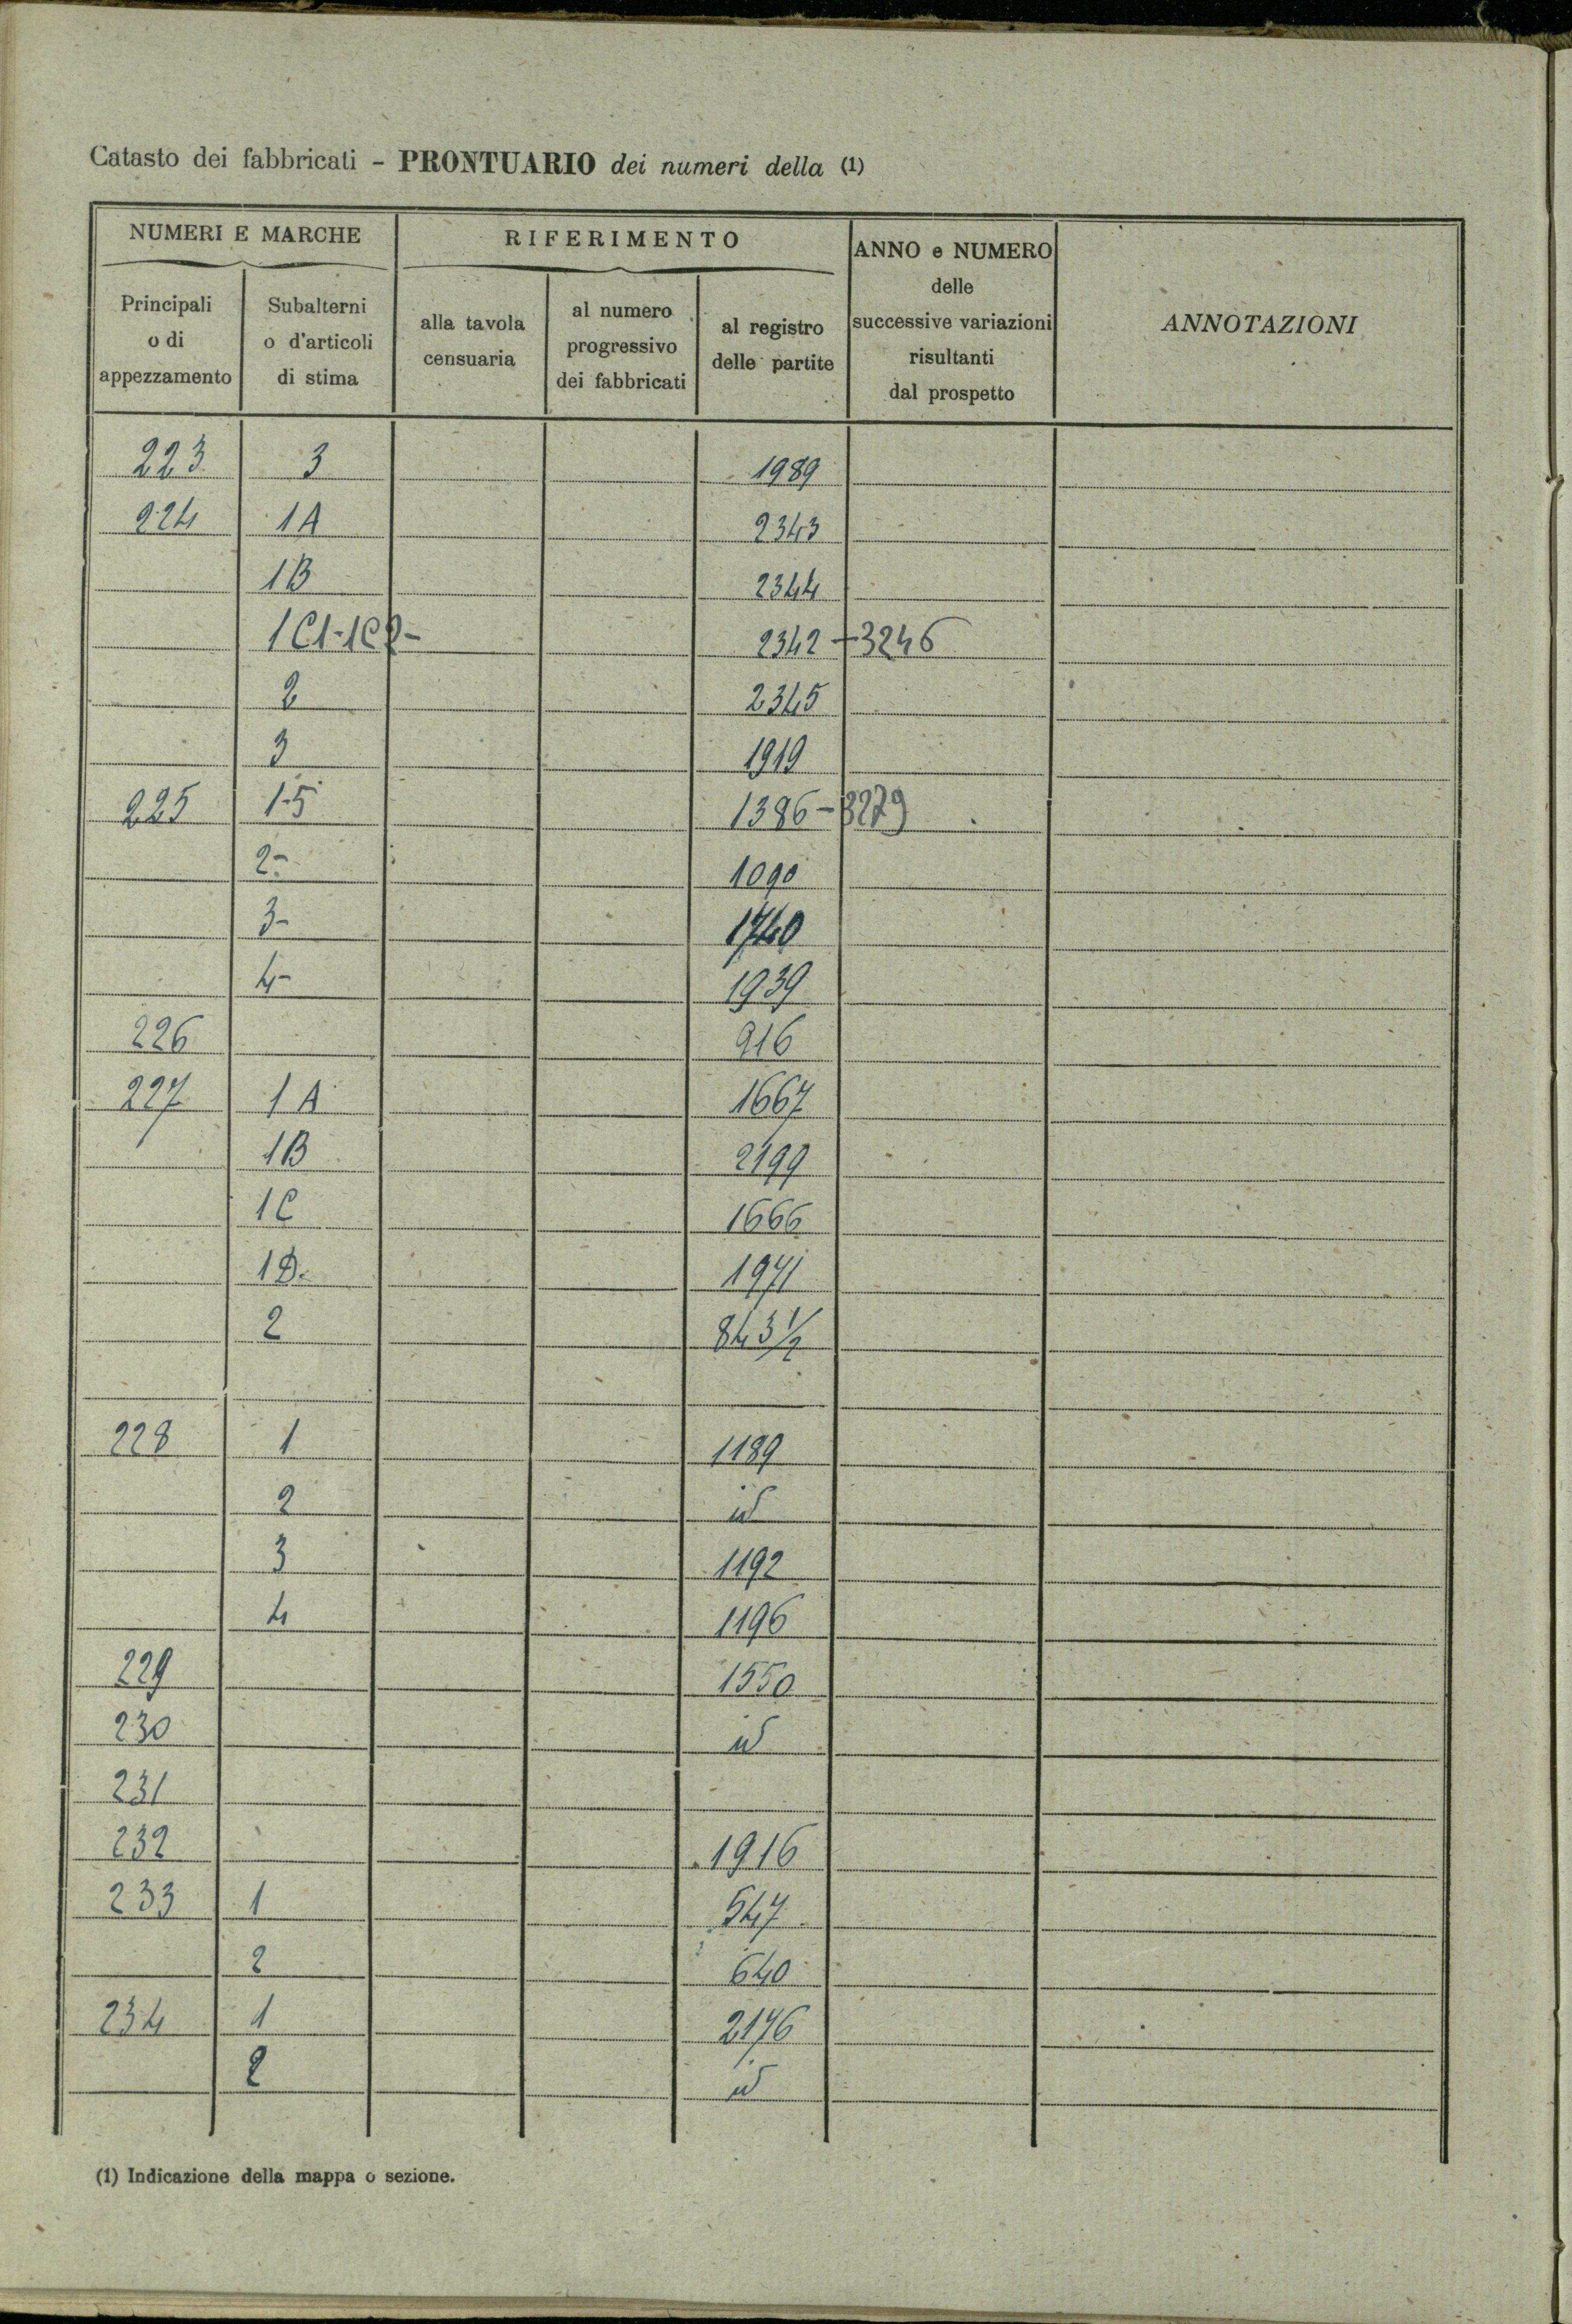 Catasto dei fabbricati - PRONTUARIO dei numeri della (1)
NUMERI E MARCHE
RIFERIMENTO
ANNO e NUMERO
delle
successive variazioni
risultanti
dal prospetto
ANNOTAZIONI
Principali
o di
appezzamento
Subalterni
o d'articoli
di stima
alla tavola
censuaria
al numero
progressivo
dei fabbricati
al registro
delle partite
223 3 1989
224 1A 2343
1B 2344
1C1-1C2- 2342 - 3246
2 2345
3 1919
225 1-5 1386 - 3279
2- 1090
3- 1740
4- 1939
226 916
227 1A 1667
1B 2199
1C 1666
1D. 1971
2 843 1/2
228 1 1189
2 id
3 1192
4 1196
229 1550
230 id
231
232 1916
233 1 547
2 640
234 1 2176
2 id
(1) Indicazione della mappa o sezione.